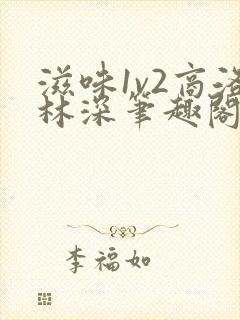 滋味1v2高洛
林深笔趣阁
李福如